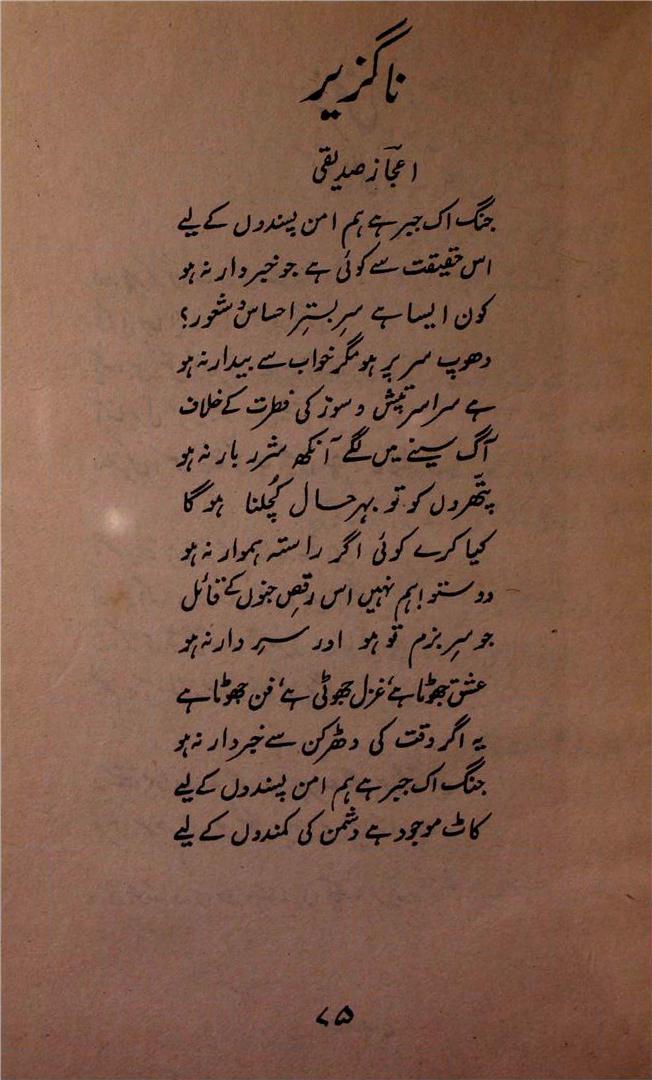 ناگزیر
اعجاز صدیقی
جنگ اک جبر ہے ہم امن پسندوں کے لیے
اس حقیقت سے کوئی ہے جو خبردار نہ ہو
کون ایسا ہے سرِ بسترِ احساس و شعور؟
دھوپ سر پر ہو مگر خواب سے بیدار نہ ہو
ہے سراسر تپش و سوز کی فطرت کے خلاف
آگ سینے میں لگے آنکھ شرر بار نہ ہو
پتّھروں کو تو بہر حال کُچلنا ہو گا
کیا کرے کوئی اگر راستہ ہموار نہ ہو
دوستو! ہم نہیں اس رقصِ جنوں کے قائل
جو سرِ بزم تو ہو اور سرِ دار نہ ہو
عشق جھوٹا ہے، غزل جھوٹی ہے، فن جھوٹا ہے
یہ اگر وقت کی دھڑکن سے خبردار نہ ہو
جنگ اک جبر ہے ہم امن پسندوں کے لیے
کاٹ موجود ہے دشمن کی کمندوں کے لیے
۷۵